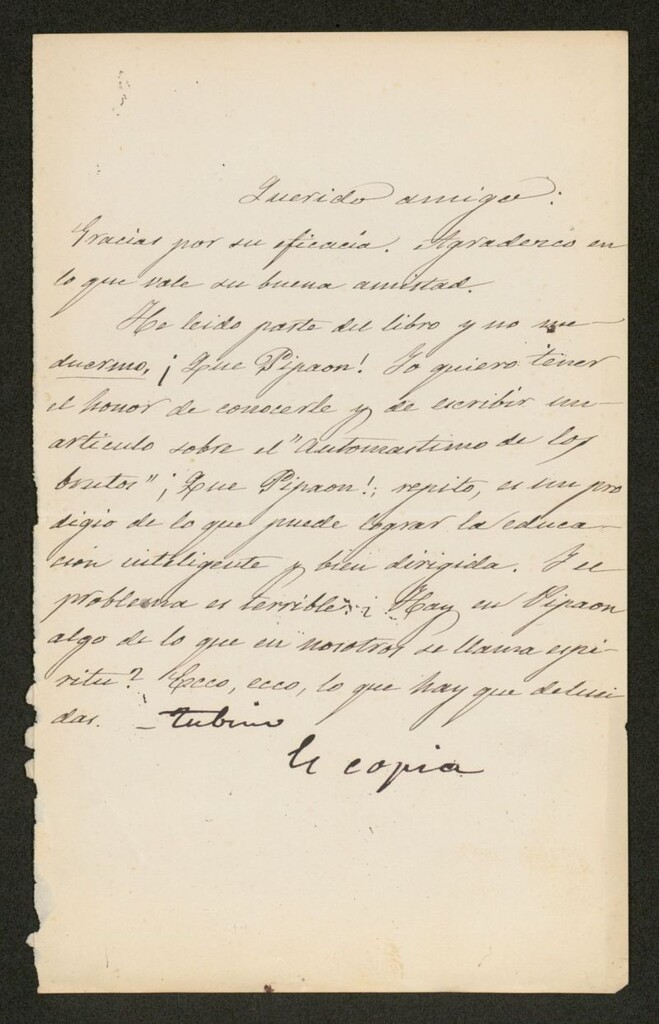 Querido amigo:
Gracias por su eficacia. Agradezco en
lo que vale su buena amistad.
He leido parte del libro y no me
duermo, ¡Que Pipaon! Yo quiero tener
el honor de conocerle y de escribir un
articulo sobre el "Automastismo de los
brutos"; ¡Que Pipaon!; repito, es un pro
digio de lo que puede lograr la educa-
cion inteligente y bien dirigida. Y el
problema es terrible: ¿Hay en Pipaon
algo de lo que en nosotros se llama espi-
ritu? Ecco, ecco, lo que hay que deluci
dar. - Tubino
Es copia